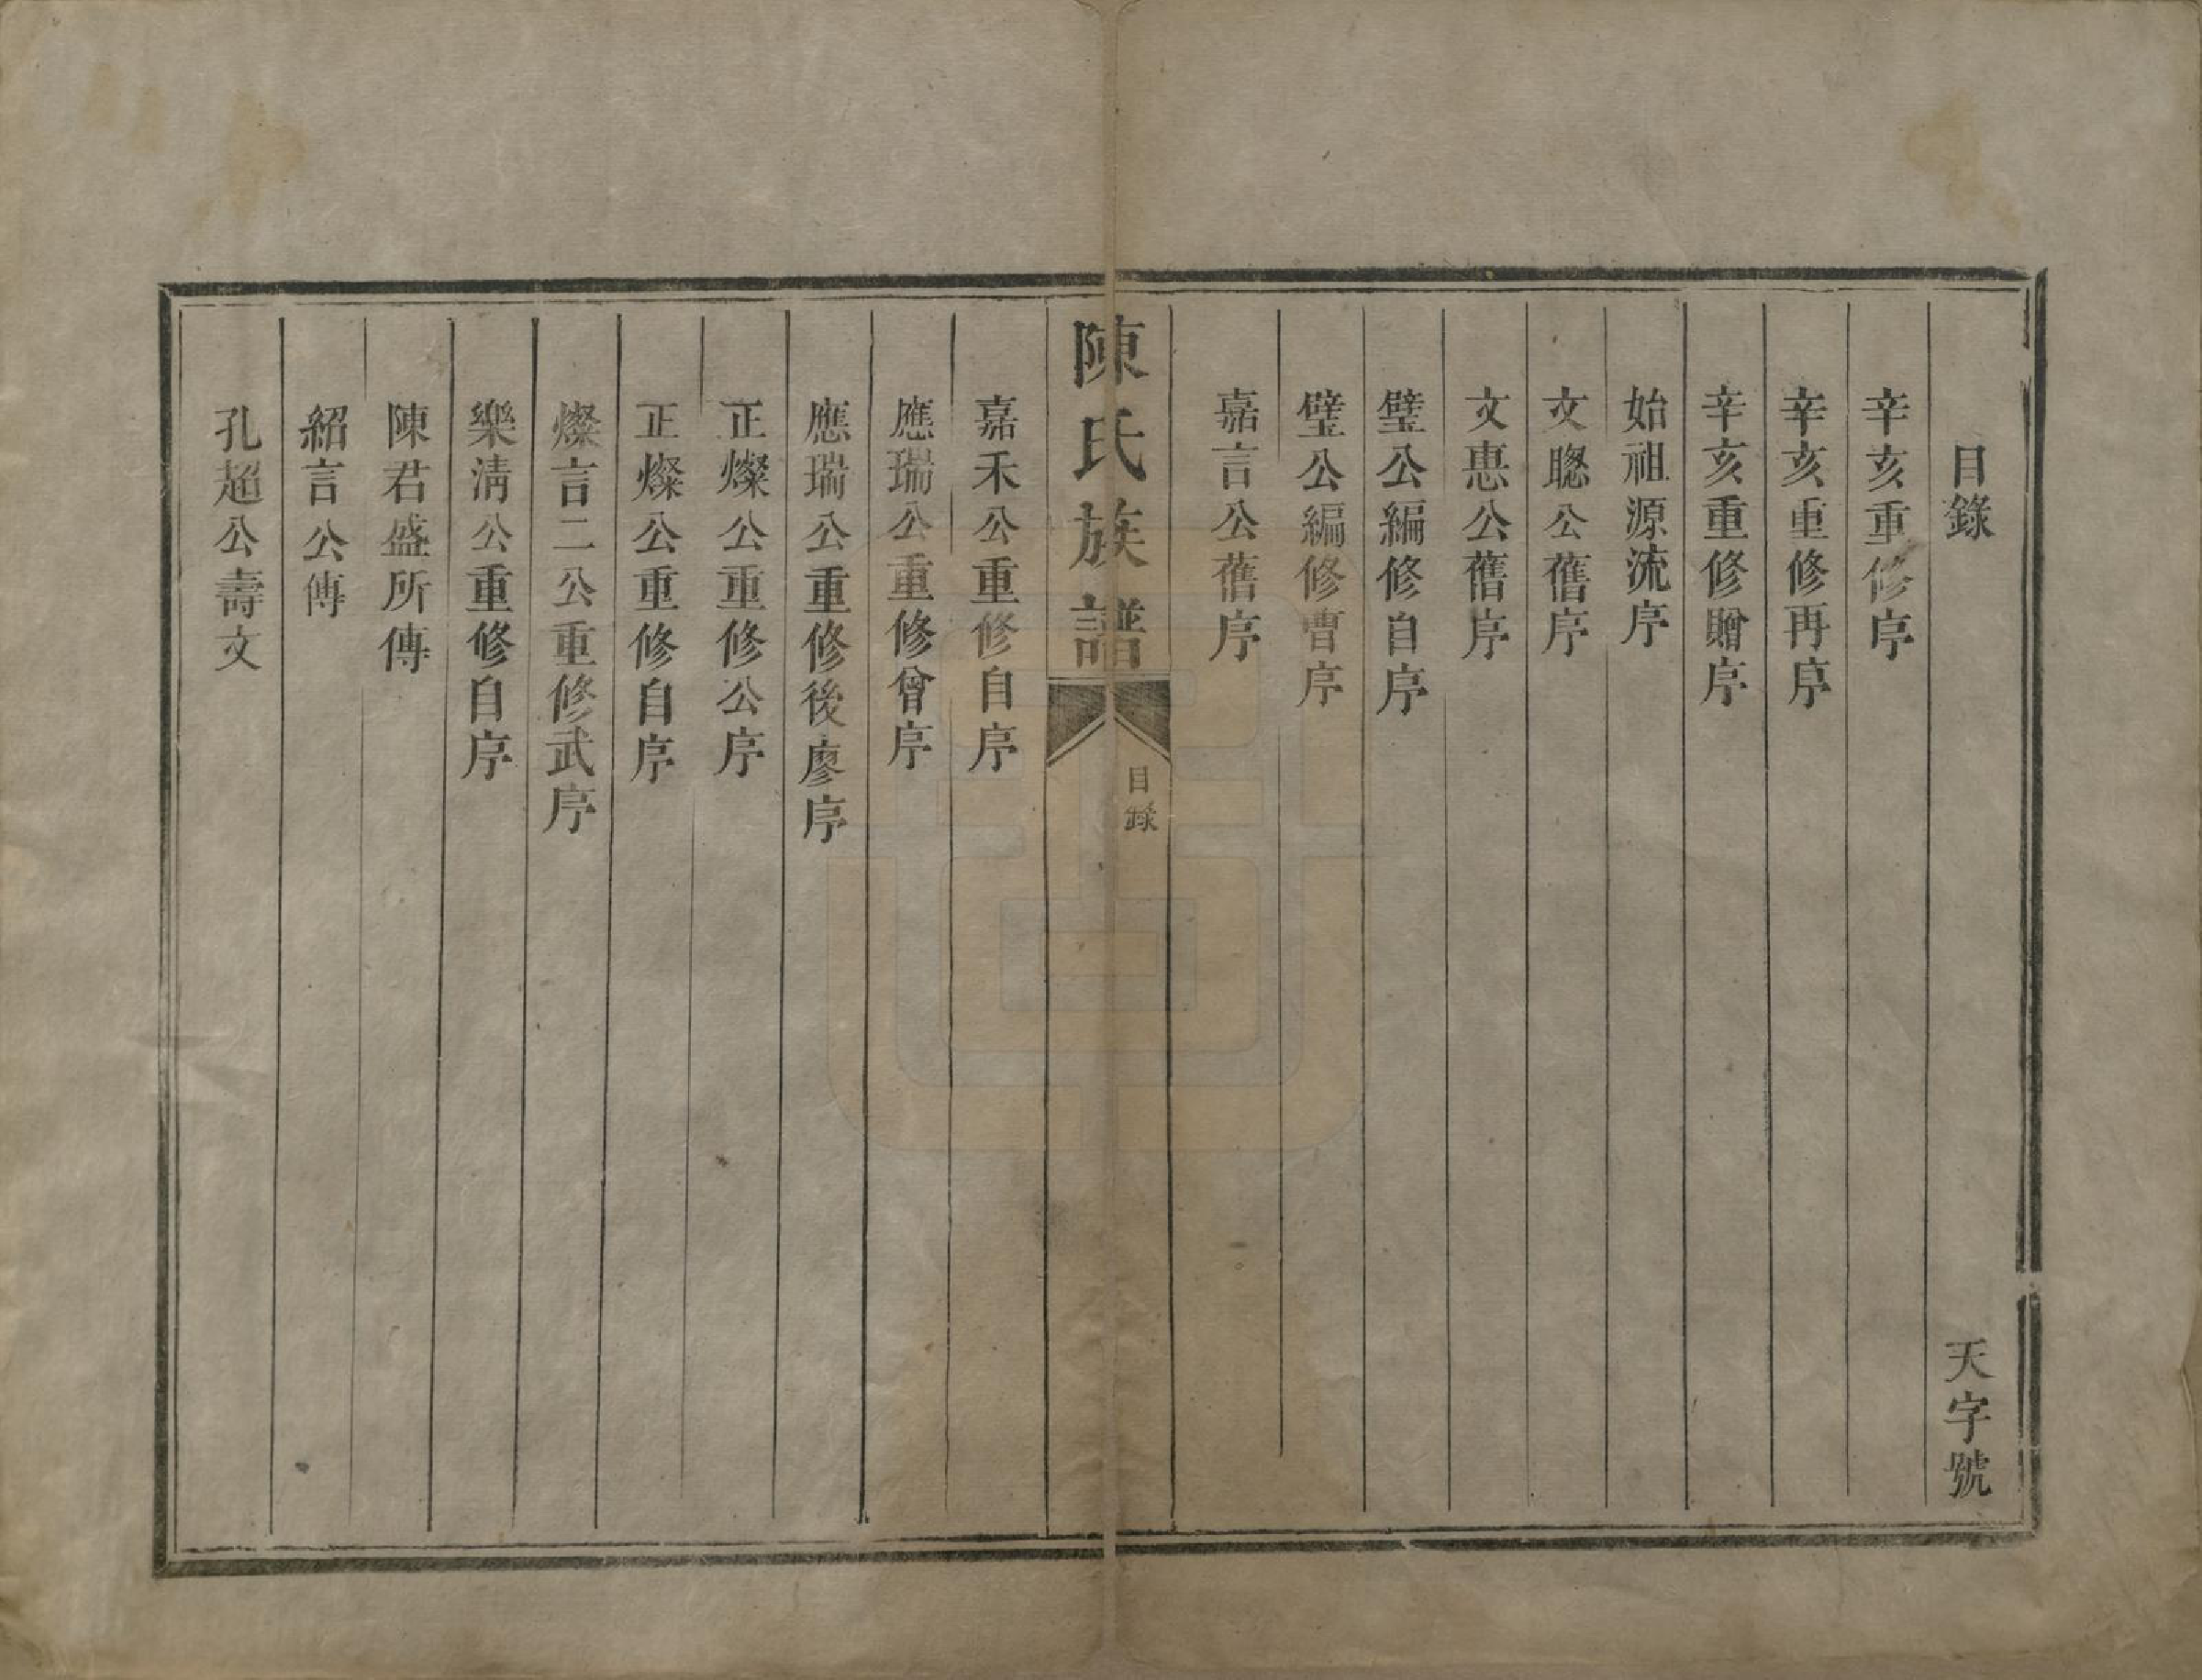 目錄 天字號
辛亥重修序
辛亥重修再序
辛亥重修贈序
始祖源流序
文聰公舊序
文惠公舊序
璧公編修自序
璧公編修曹序
嘉言公舊序
陳氏族譜 目錄
嘉禾公重修自序
應瑞公重修曾序
應瑞公重修後廖序
正燦公重修公序
正燦公重修自序
燦言二公重修武序
樂清公重修自序
陳君盛所傳
紹言公傳
孔超公壽文